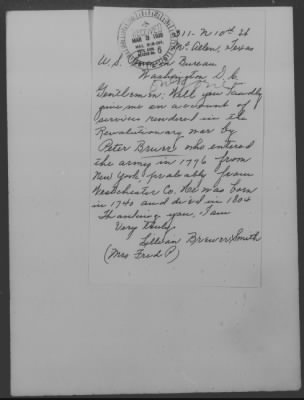 311- N 10th St
Mc Allen, Texas
U.S. Pension Bureau
Washington D.C.
Gentlemen: Will you kindly
give me an account of
services rendered in the
Revolutionary war by
Peter Bruer who entered
the army in 1776 from
New York, probably from
Westchester Co. He was born
in 1740 and died in 1804
Thanking you, I am
Very Truly
Lillian Brewer Smith
(Mrs Fred P)